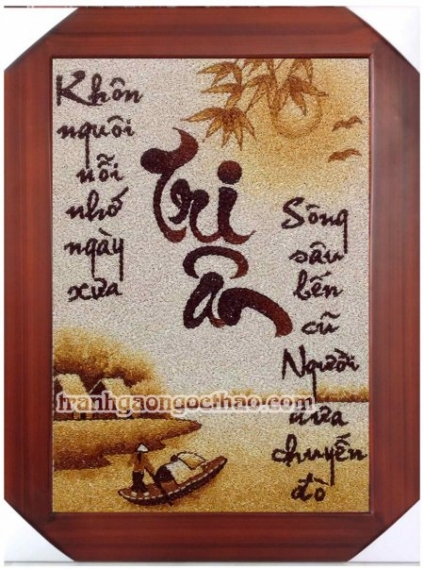 Khôn
nguôi
nỗi
nhớ
ngày
xưa
Tri
ân
Sông
sâu
bến
cũ
Người
chuyến
đò
tranhgaongocthao.com